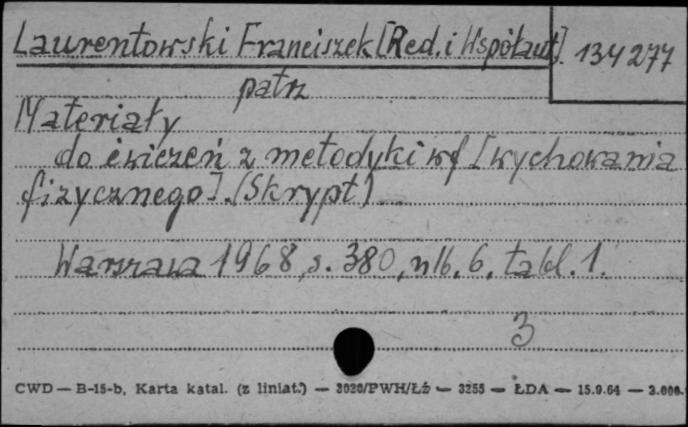 Laurentowski Franciszek [Red. i Współaut]. 134277
patrz
Materiały
do ćwiczeń z metodyki wf [wychowania
fizycznego]. (Skrypt)
Warszawa 1968, s. 380, nlb. 6, tabl. 1.
3
CWD — B-15-b, Karta katal. (z liniat.) — 3020/PWH/Łź — 3255 — ŁDA — 15.9.64 — 2.000.